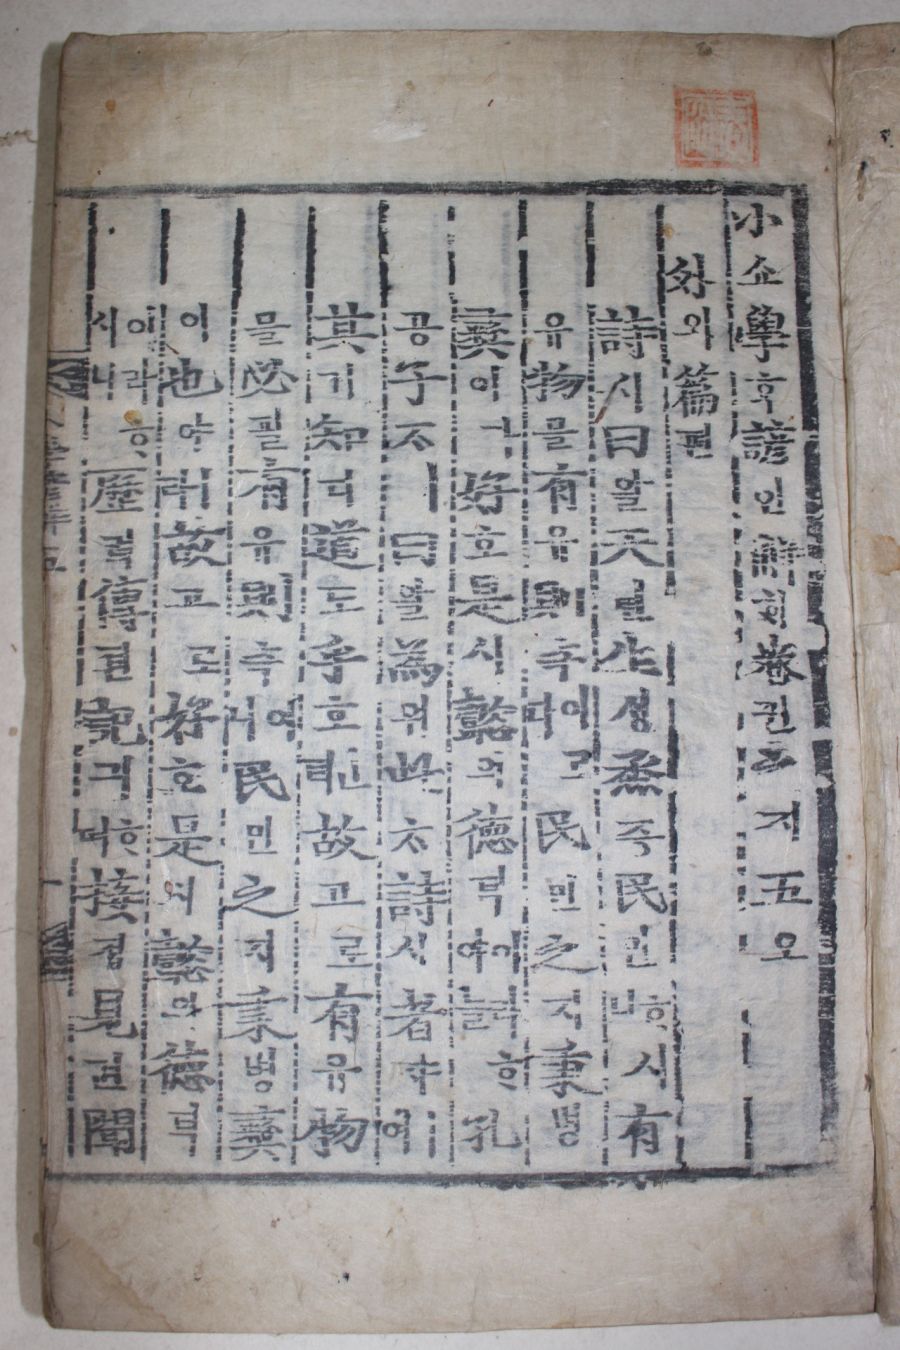 小쇼學ᄒᆞᆨ諺언解ᄒᆡ卷권之지五오
外외篇편
詩시曰왈天텬生ᄉᆡᆼ烝증民민ᄒᆞ시 有
유物믈有유則측이로다民민之지秉병
彛이라好호是시懿의德덕 孔
공子ᄌᆞㅣ曰왈爲위此ᄎᆞ詩시者쟈ㅣ여
其기知디道도乎호 故고로有유物
믈必필有유則측 民민之지秉병彛
이也야ㅣ라故고로好호是시懿의德덕
이라ᄒᆞ시니歷력傳뎐記긔ᄒᆞ며接졉見견聞